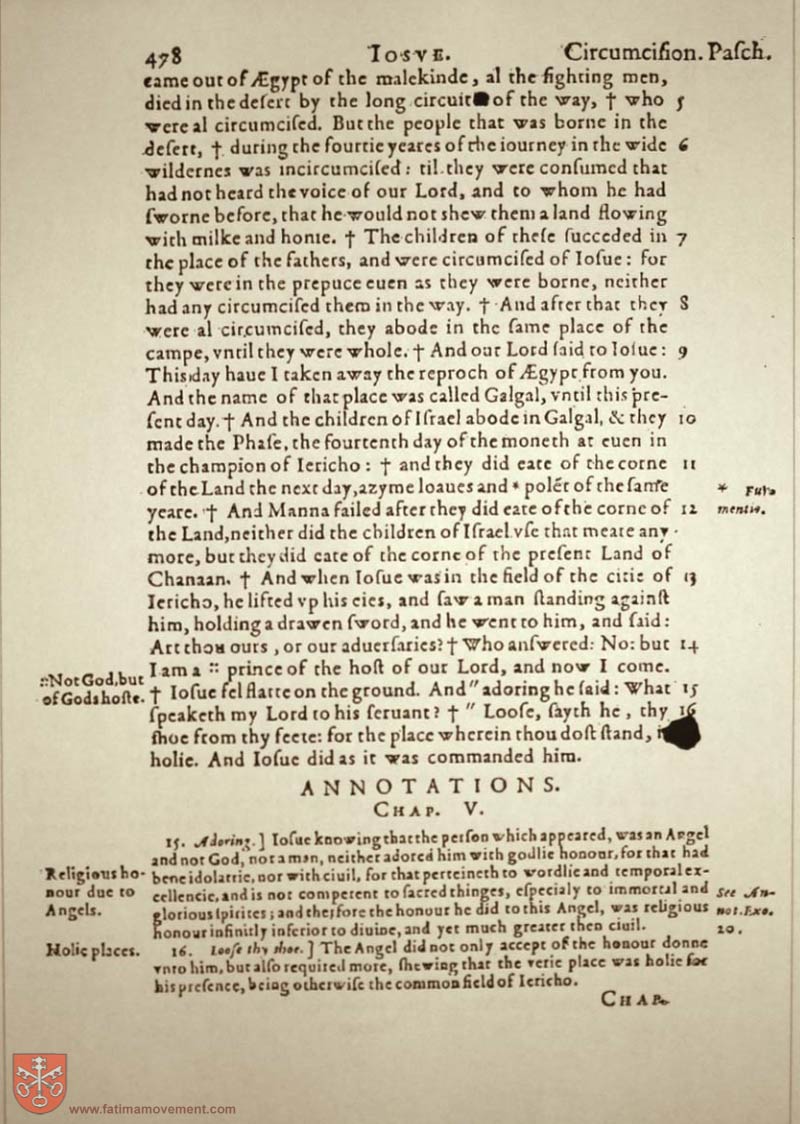 478 IOSVE. Circumciſion. Paſch.
came out of Ægypt of the malekinde, al the fighting men,
died in the deſert by the long circuit of the way, † who 5
were al circumciſed. But the people that was borne in the
deſert, † during the fourtie yeares of the iourney in the wide 6
wildernes was incircumciſed: til they were conſumed that
had not heard the voice of our Lord, and to whom he had
ſworne before, that he would not shew them a land flowing
with milke and honie. † The children of theſe ſucceded in 7
the place of the fathers, and were circumciſed of Ioſue: for
they were in the prepuce euen as they were borne, neither
had any circumciſed them in the way. † And after that they 8
were al circumciſed, they abode in the ſame place of the
campe, vntil they were whole. † And our Lord ſaid to Ioſue: 9
This day haue I taken away the reproch of Ægypt from you.
And the name of that place was called Galgal, vntil this pre-
ſent day. † And the children of Iſrael abode in Galgal, & they 10
made the Phaſe, the fourtenth day of the moneth at euen in
the champion of Iericho: † and they did eate of the corne 11
of the Land the next day, azyme loaues and * polẽt of the ſame
* Fruмentie.
yeare. † And Manna failed after they did eate of the corne of 12
the Land, neither did the children of Iſrael vſe that meate any
more, but they did eate of the corne of the preſent Land of
Chanaan. † And when Ioſue was in the field of the citie of 13
Iericho, he lifted vp his eies, and ſaw a man ſtanding againſt
him, holding a drawen ſword, and he went to him, and ſaid:
Art thou ours, or our aduerſaries? † Who anſwered: No: but 14
I am a :: prince of the hoſt of our Lord, and now I come.
::Not God, but
of Gods hoſte.
† Ioſue fel flatte on the ground. And " adoring he ſaid: What 15
ſpeaketh my Lord to his ſeruant? † " Looſe, ſayth he, thy 16
ſhoe from thy feete: for the place wherein thou doſt ſtand,
holie. And Ioſue did as it was commanded him.
ANNOTATIONS.
CHAP. V.
15. Adoring.] Ioſue knowing that the perſon which appeared, was an Angel
and not God, not a man, neither adored him with godlie honour, for that had
Religious ho-
nour due to
Angels.
bene idolatrie, nor with ciuil, for that perteineth to wordlie and temporal ex-
cellencie, and is not competent to ſacred thinges, eſpecialy to immortal and
See An-
not. Exo.
20.
glorious ſpirites; and therfore the honour he did to this Angel, was religious
honour infinitly inferior to diuine, and yet much greater then ciuil.
Holie places.
16. Looſe thy shoe.] The Angel did not only accept of the honour donne
vnto him, but alſo required more, ſhewing that the verie place was holie for
his preſence, being otherwiſe the common field of Iericho.
CHAP.
www.fatimamovement.com